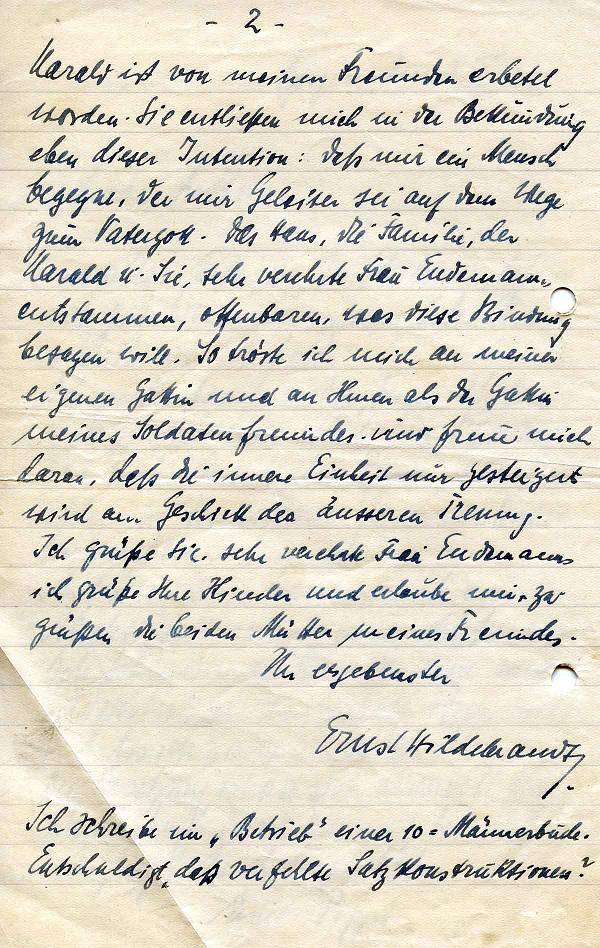 - 2 -
Harald ist von meinen Freunden erbetet
worden. Sie entließen mich in der Bekundung
eben dieser Intention: daß mir ein Mensch
begegne, der mir Geleiter sei auf dem Wege
zum Vatergott. Das Haus, die Familie, der
Harald u. Sie, sehr verehrte Frau Endemann,
entstammen, offenbaren, was diese Bindung
besagen will. So tröste ich mich an meiner
eigenen Gattin und an Ihnen als der Gattin
meines Soldatenfreundes. und freue mich
daran, daß die innere Einheit nur gesteigert
wird am Geschick der äusseren Trennung.
Ich grüße Sie, sehr verehrte Frau Endemann
ich grüße Ihre Kinder und erlaube mir, zu
grüßen die beiden Mütter meines Freundes.
Ihr ergebenster
Ernst Hildebrandt.
Ich schreibe im „Betrieb" einer 10=Männerbude.
Entschuldigt, daß verfehlte Satzkonstruktionen?